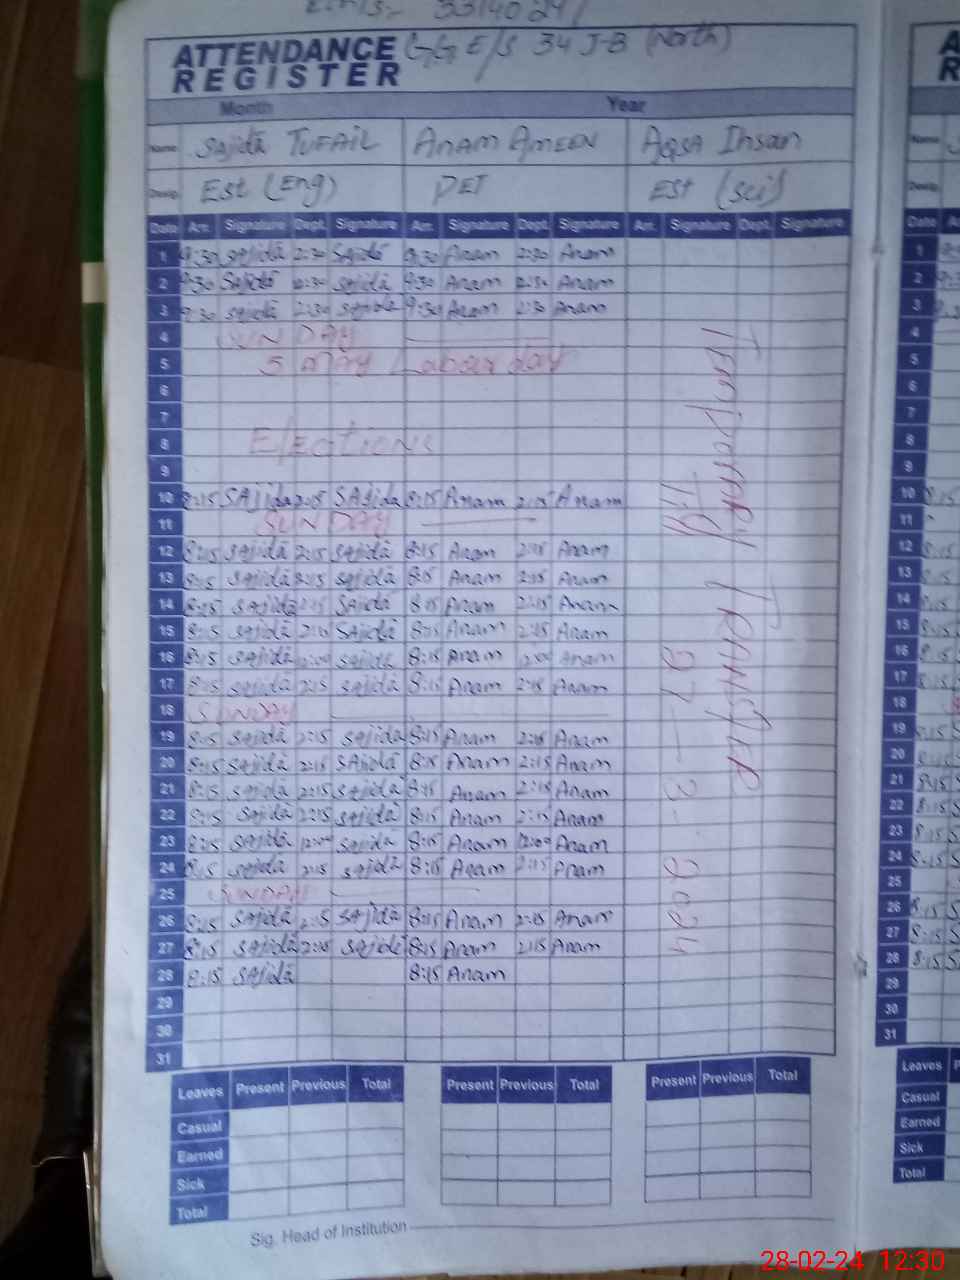 ATTENDANCE GGE/S 34 J-B (North)
REGISTER
Month Year
Name Sajidā TUFAIL ANAM AMEEN AQSA Ihsan
Desig Est (Eng) PET Est (sci)
Date Arr. Signature Dept. Signature Arr. Signature Dept. Signature Arr. Signature Dept. Signature
1 9:30 sajidā 2:30 sajidā 9:30 Anam 2:30 Anam
2 9:30 sajidā 2:30 sajidā 9:30 Anam 2:30 Anam
3 9:30 sajidā 2:30 sajida 9:30 Anam 2:30 Anam
4 SUN DAY
5 5 MAY Labour day
6
7
8 Elections
9
10 8:15 SAjida 2:15 SAjida 8:15 Anam 2:15 Anam
11 SUN DAY
12 8:15 sajidā 2:15 sajidā 8:15 Anam 2:15 Anam
13 8:15 sajidā 8:15 sajidā 8:15 Anam 2:15 Anam
14 8:15 SAjidā 2:15 SAjidā 8:15 Anam 2:15 Anam
15 8:15 sajidā 2:15 SAjidā 8:15 Anam 2:15 Anam
16 8:15 sajidā 12:00 sajidā 8:15 Anam 12:00 Anam
17 8:15 sajidā 2:15 sajidā 8:15 Anam 2:15 Anam
18 SUNDAY
19 8:15 sajidā 2:15 sajida 8:15 Anam 2:15 Anam
20 8:15 sajidā 2:15 SAjidā 8:15 Anam 2:15 Anam
21 8:15 sajidā 2:15 sajidā 8:15 Anam 2:15 Anam
22 8:15 sajidā 2:15 sajidā 8:15 Anam 2:15 Anam
23 8:15 sajidā 12:00 sajidā 8:15 Anam 12:00 Anam
24 8:15 sajida 2:15 sajidā 8:15 Anam 2:15 Anam
25 SUNDAY
26 8:15 sajidā 2:15 sajidā 8:15 Anam 2:15 Anam
27 8:15 sajidā 2:15 sajida 8:15 Anam 2:15 Anam
28 8:15 sajidā 8:15 Anam
29
30
31
TEMPORARY TRANSFER
Till 07-3-2024
Leaves Present Previous Total Present Previous Total Present Previous Total
Casual
Earned
Sick
Total
Sig. Head of Institution
Date
1
2
3
4
5
6
7
8
9
10 8:15
11
12 8:15
13 8:15
14 8:15
15 8:15
16 8:15
17 8:15
18
19 8:15
20 8:15
21 8:15
22 8:15
23 8:15
24 8:15
25
26 8:15
27 8:15
28 8:15
29
30
31
Leaves
Casual
Earned
Sick
Total
28-02-24 12:30